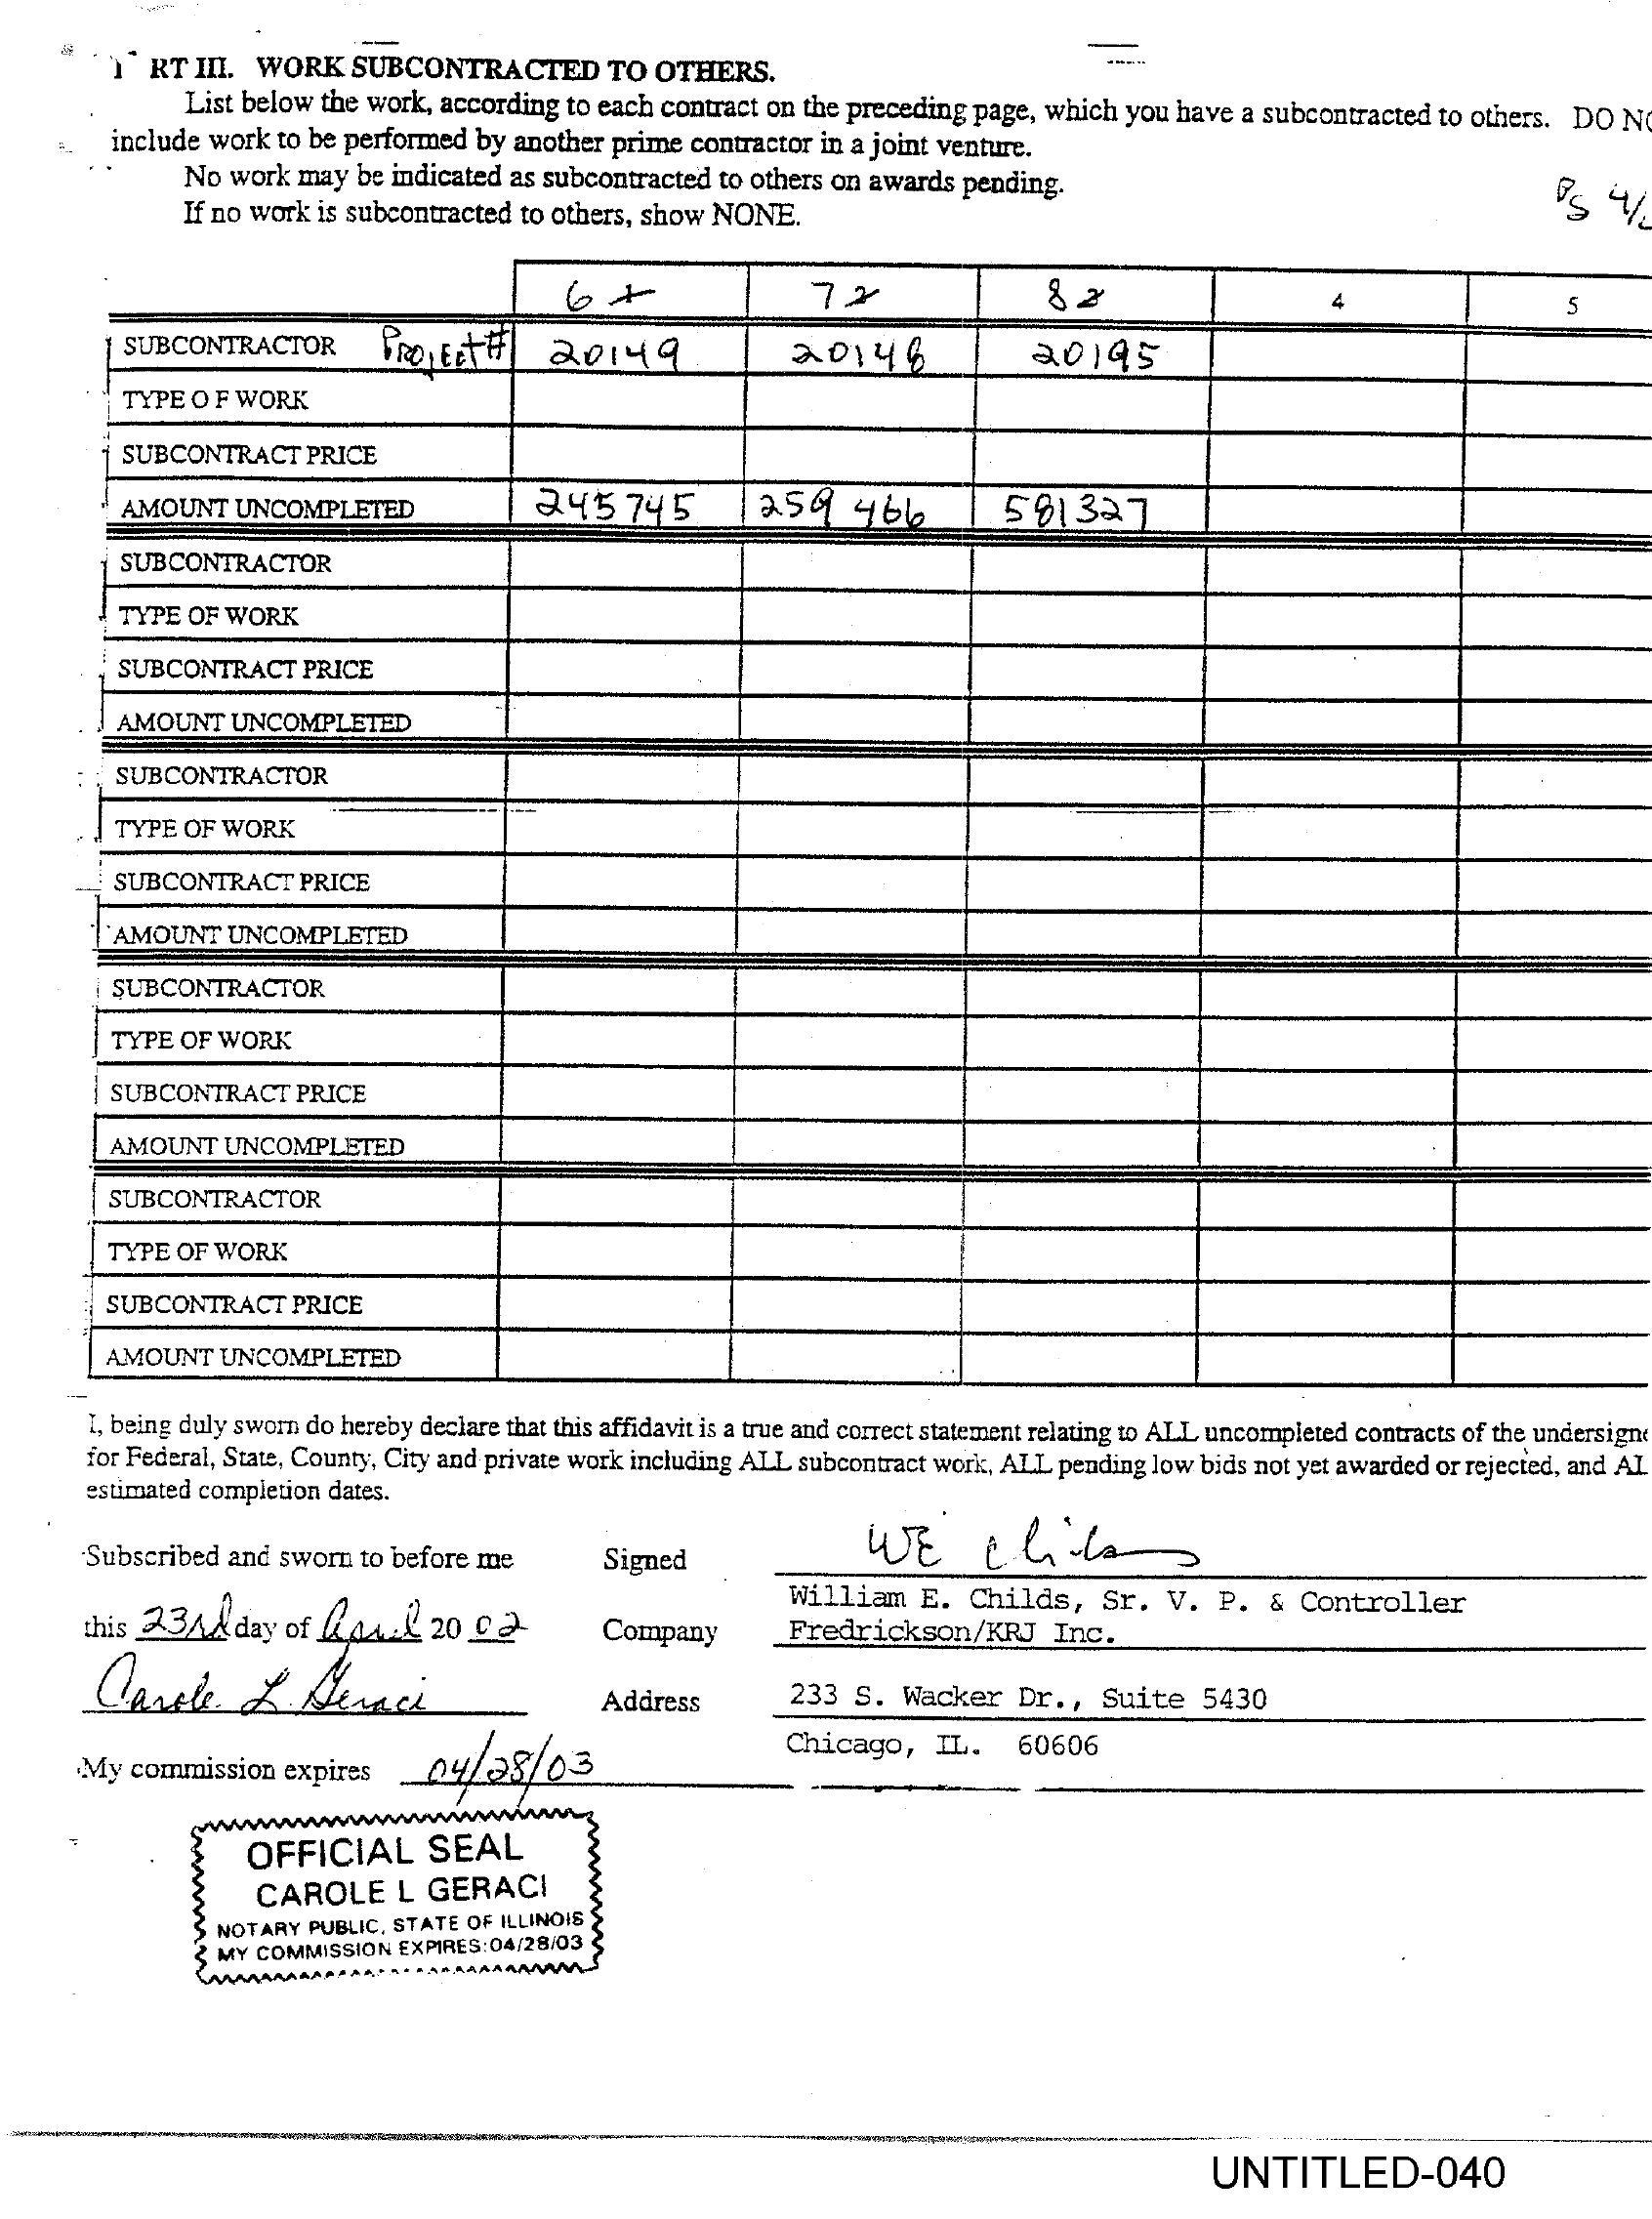 RT III. WORK SUBCONTRACTED TO OTHERS.
List below the work, according to each contract on the preceding page, which you have a subcontracted to others. DO NO
include work to be performed by another prime contractor in a joint venture.
No work may be indicated as subcontracted to others on awards pending.
If no work is subcontracted to others, show NONE.
6 1 7 2 8 3 4 5
SUBCONTRACTOR PROJECT# 20149 20148 20195
TYPE OF WORK
SUBCONTRACT PRICE
AMOUNT UNCOMPLETED 245745 259466 581327
SUBCONTRACTOR
TYPE OF WORK
SUBCONTRACT PRICE
AMOUNT UNCOMPLETED
SUBCONTRACTOR
TYPE OF WORK
SUBCONTRACT PRICE
AMOUNT UNCOMPLETED
SUBCONTRACTOR
TYPE OF WORK
SUBCONTRACT PRICE
AMOUNT UNCOMPLETED
SUBCONTRACTOR
TYPE OF WORK
SUBCONTRACT PRICE
AMOUNT UNCOMPLETED
I, being duly sworn do hereby declare that this affidavit is a true and correct statement relating to ALL uncompleted contracts of the undersigne
for Federal, State, County, City and private work including ALL subcontract work, ALL pending low bids not yet awarded or rejected, and AL
estimated completion dates.
Subscribed and sworn to before me Signed WE Childs
William E. Childs, Sr. V. P. & Controller
this 23rd day of April 20 02 Company Fredrickson/KRJ Inc.
Carole L. Geraci Address 233 S. Wacker Dr., Suite 5430
Chicago, IL. 60606
My commission expires 04/28/03
OFFICIAL SEAL
CAROLE L GERACI
NOTARY PUBLIC, STATE OF ILLINOIS
MY COMMISSION EXPIRES:04/28/03
UNTITLED-040